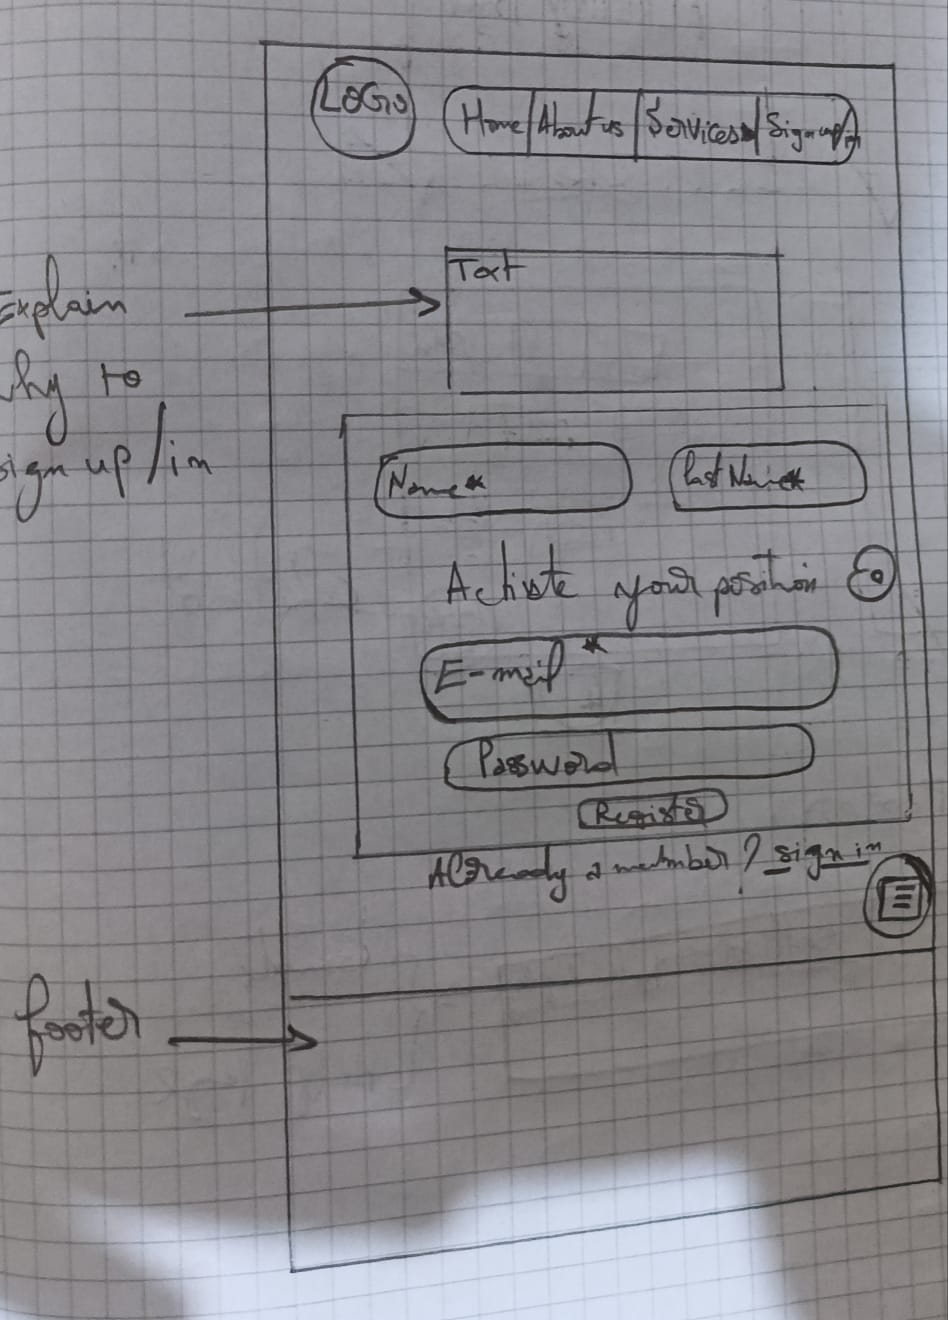 LOGO
Home About us Services Sign up/in
Text
Explain
why to
sign up/in
Name*
last Name*
Activate your position
E-mail *
Password
Register
Already a member? sign in
footer